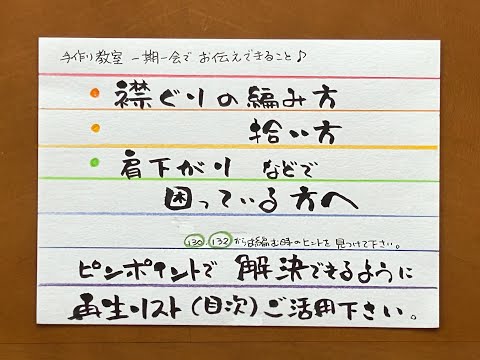 手作り教室 一期一会で お伝えできること♪
• 襟ぐりの編み方
• 拾い方
• 肩下がり などで
困っている方へ
130. 132 からは編む時のヒントを見つけて下さい。
ピンポイントで 解決できるように
再生リスト(目次)ご活用下さい。